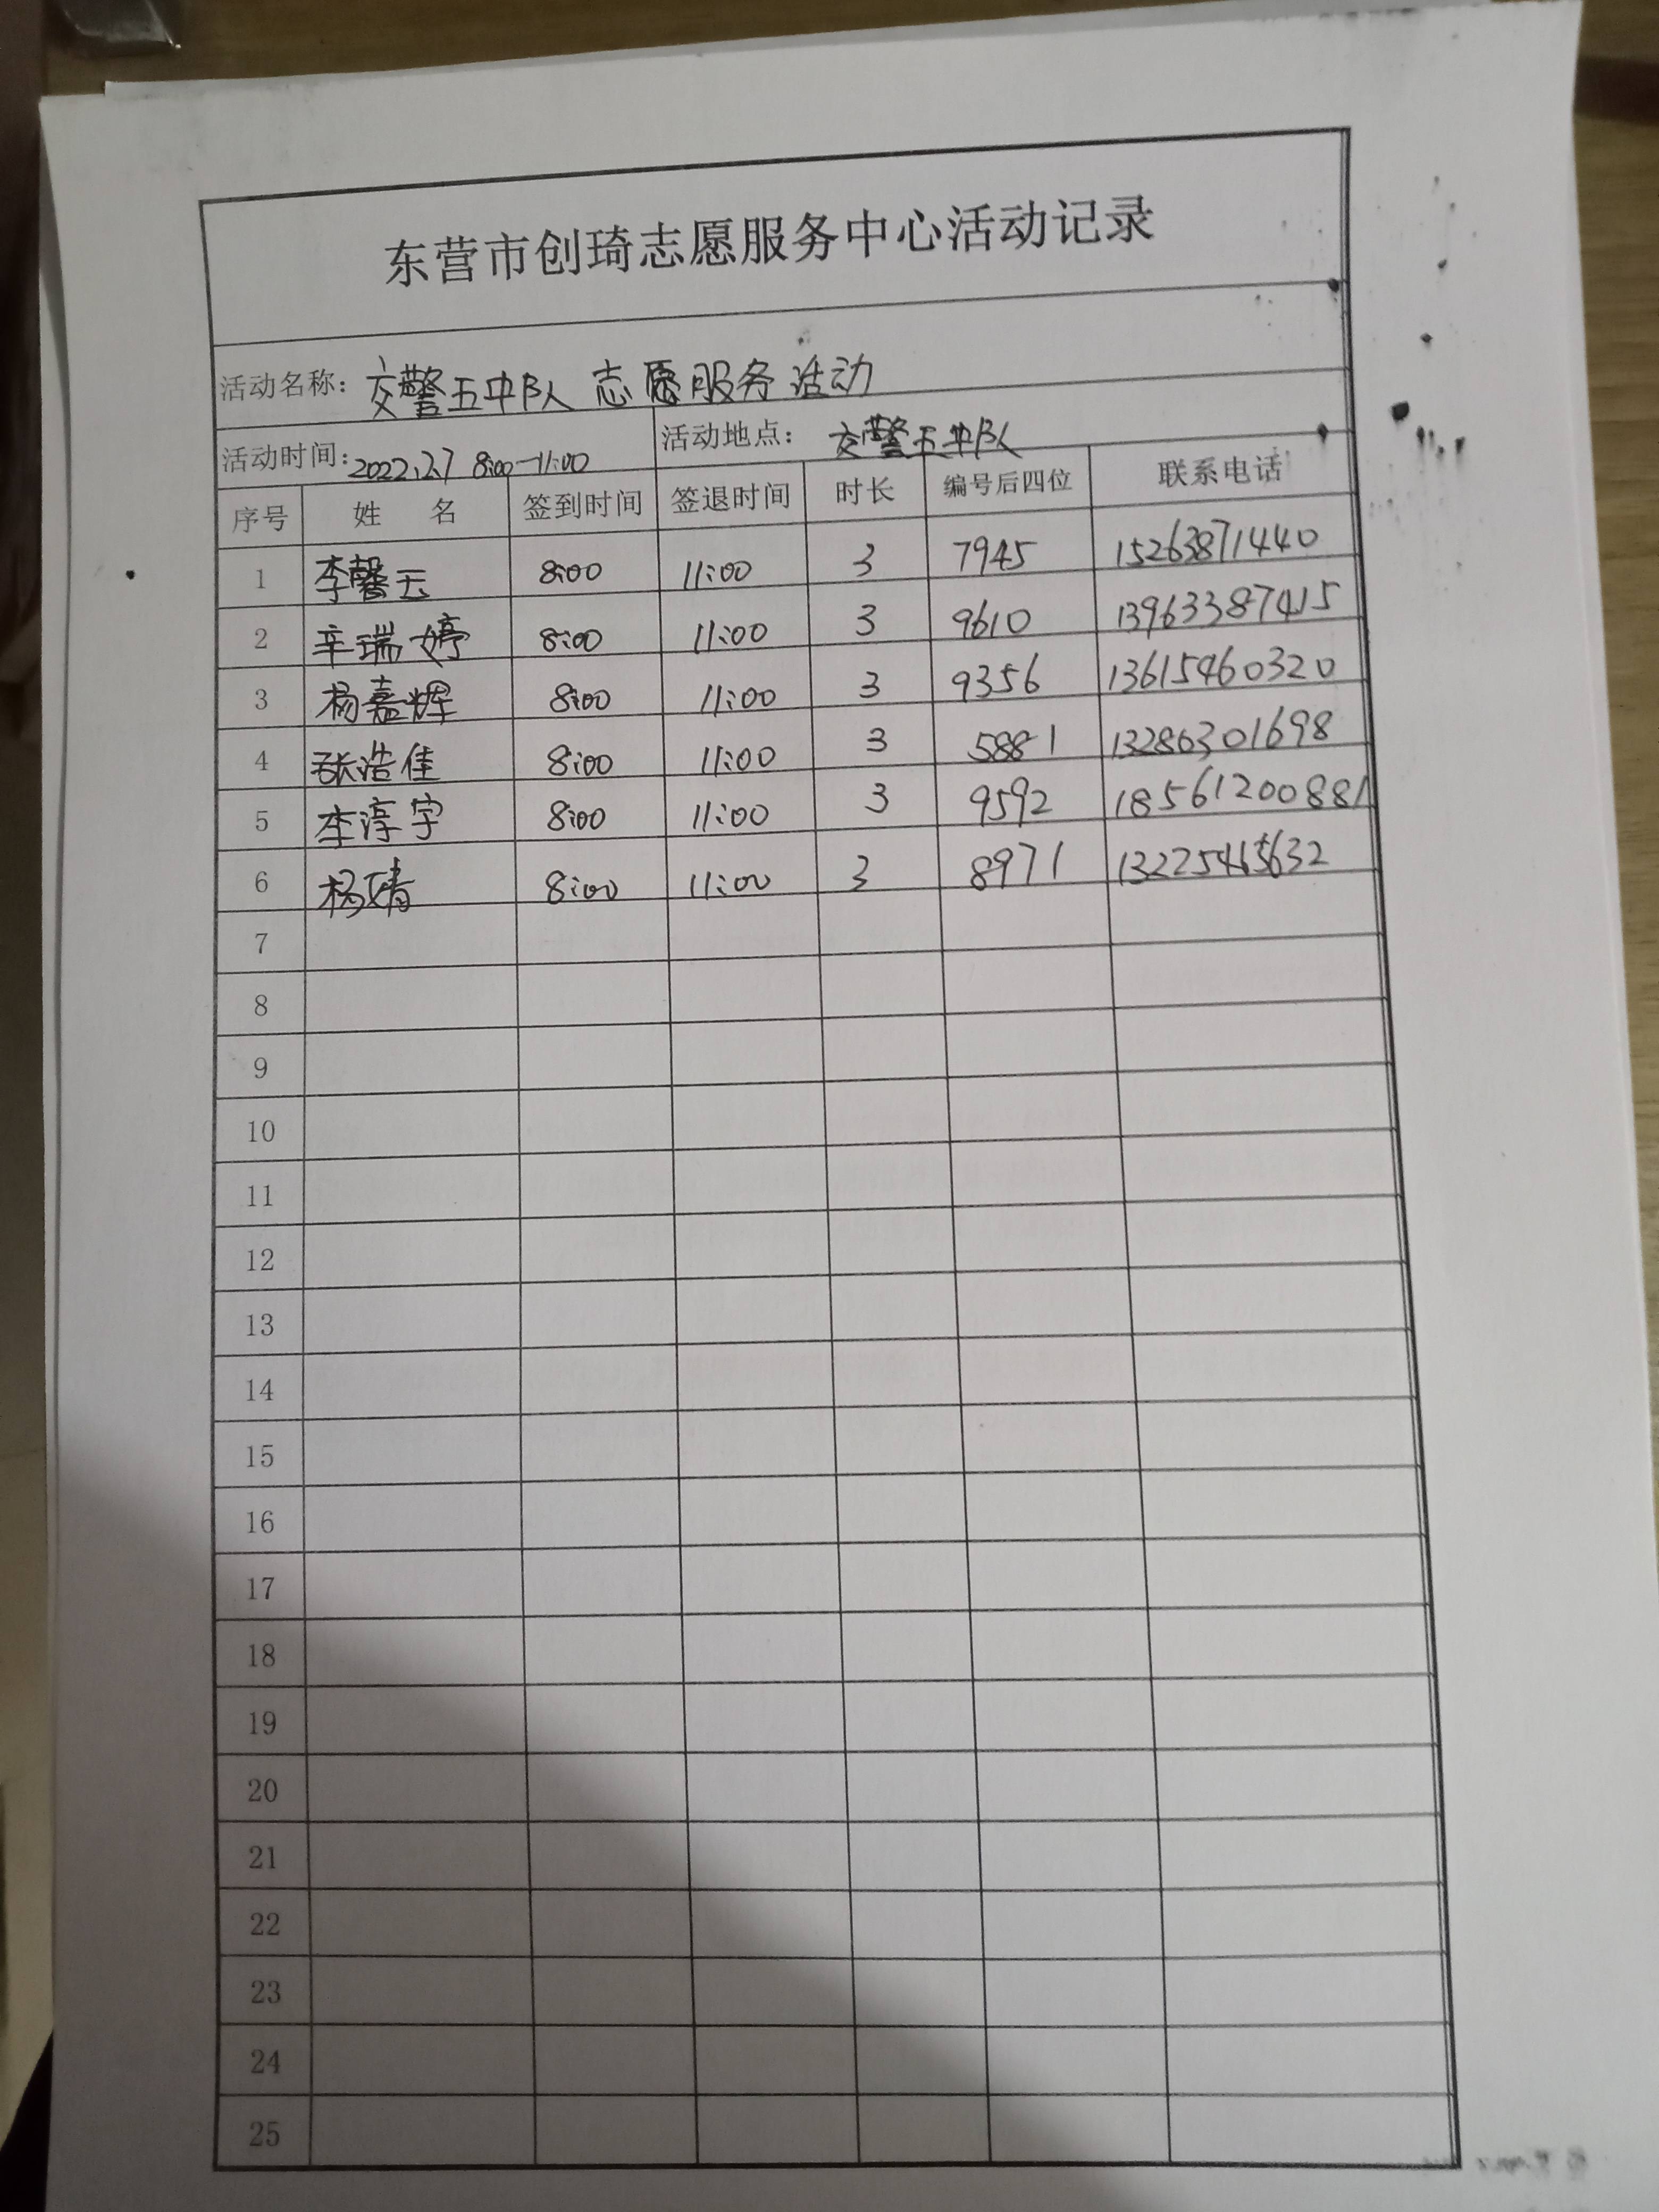 东营市创琦志愿服务中心活动记录
活动名称：交警五中队 志愿服务活动
活动时间：2022.2.7 8:00-11:00 活动地点：交警五中队
序号 姓 名 签到时间 签退时间 时长 编号后四位 联系电话
1 李馨玉 8:00 11:00 3 7945 15263871440
2 辛瑞婷 8:00 11:00 3 9610 13963387415
3 杨嘉辉 8:00 11:00 3 9356 13615460320
4 张浩佳 8:00 11:00 3 5881 13286301698
5 李淳宇 8:00 11:00 3 9592 18561200881
6 杨婧 8:00 11:00 3 8971 13225465632
7
8
9
10
11
12
13
14
15
16
17
18
19
20
21
22
23
24
25